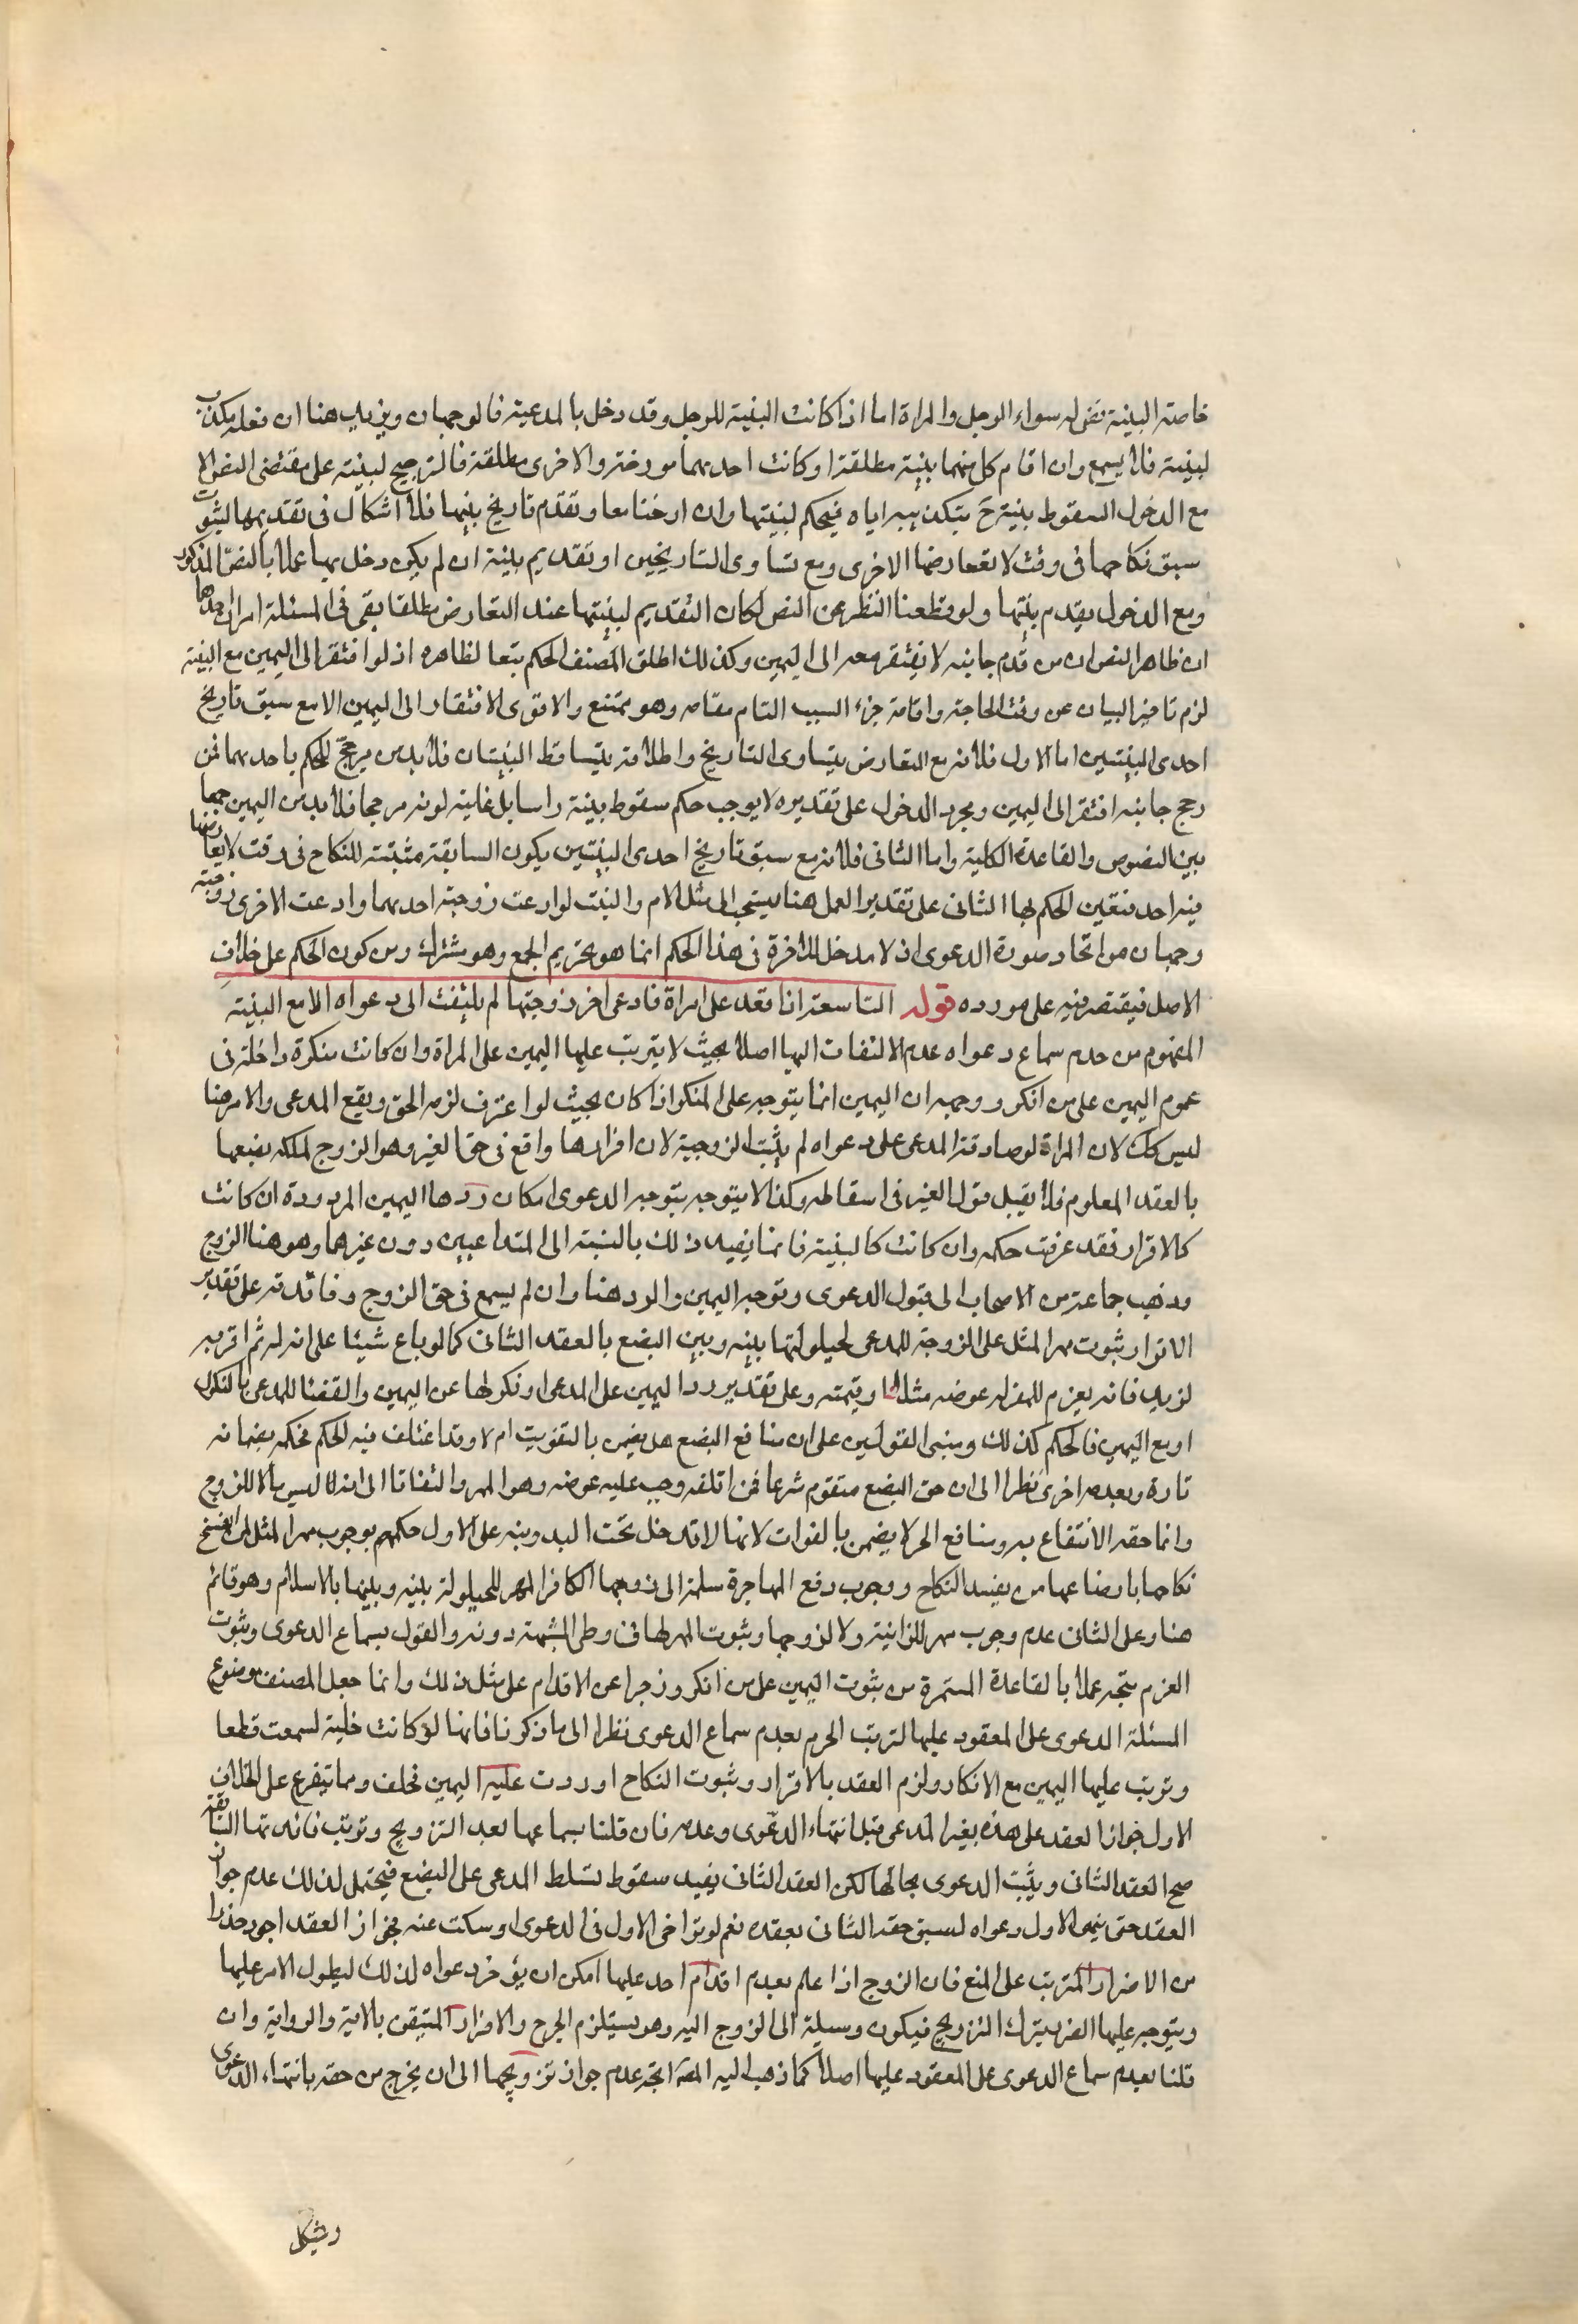 خاصة البينة فقوله سواء الرجل والمراة اما اذا كانت البينة للرجل وقد دخل بالمدعية فالوجهان ويزيد هنا ان فعله مكذب
لبينته فلا يسمع وان اقام كل منهما بينة مطلقة او كانت احدىهما مورخة والاخرى مطلقة فالترجيح لبينته على مقتضى النص الا
مع الدخول المقوط بنيته ح بتكذيبه اياه فيحكم لبينتها وان ارختا معا وتقدم تاريخ بينتها فلا اشكال في تقديمها لثبوت
سبق نكاحها في وقت لا تعارضها الاخرى ومع تساوى التاريخين او تقديم بينته ان لم يكن دخل بها عملا بالنص المذكور
ومع الدخول يقدم بينتها ولو قطعنا النظر عن النص لكان التقديم لبينتها عند التعارض مطلقا بقى في المسئلة امران احدهما
ان ظاهر النص ان من قدم جانبه لا يفتقر معه الى اليمين وكذلك اطلق المصنف الحكم تبعا لظاهره اذ لو افتقر الى اليمين مع البينة
لزم تاخير البيان عن وقت الحاجة واقامة جزء السبب التام مقامه وهو ممتنع والاقوى الافتقار الى اليمين الا مع سبق تاريخ
احدى البينتين اما الاول فلانه مع التعارض بتساوى التاريخ واطلاقه يتساقط البينتان فلابد من مرجح للحكم باحدىهما فمن
رجح جانبه افتقر الى اليمين ومجرد الدخول على تقديره لا يوجب حكم سقوط بينة راسا بل غايته كونه مرجحا فلابد من اليمين جمعا
بين النصوص والقاعدة الكلية واما الثانى فلانه مع سبق تاريخ احدى البينتين يكون السابقة مثبتة للنكاح في وقت لا يعارضها
فيه احد فتعين الحكم بها الثانى على تقدير العمل هنا ينسحب الى مثل الام والبنت لو ادعت زوجية احدىهما وادعت الاخرى زوجيته
وجهان من اتحاد صورة الدعوى اذ لا مدخل للاخوة في هذا الحكم انما هو تحريم الجمع وهو مشترك ومن كون الحكم على خلاف
الاصل فيقتصر فيه على مورده قوله التاسعة اذا عقد على امراة فادعى اخر زوجيتها لم يلتفت الى دعواه الا مع البينة
المفهوم من عدم سماع دعواه عدم الالتفات اليها اصلا بحيث لا يترتب عليها اليمين على المراة وان كانت منكرة داخلة في
عموم اليمين على من انكر ووجهه ان اليمين انما يتوجه على المنكر اذا كان بحيث لو اعترف لزمه الحق ويقع المدعى والامر هنا
ليس كك لان المراة لو صادقت المدعى على دعواه لم يثبت الزوجية لان اقرارها واقع في حق الغير وهو الزوج لملكه بضعها
بالعقد المعلوم فلا يقبل قولها لغير في اسقاطه وكذا لا يتوجه بتوجه الدعوى امكان ردها اليمين المردودة ان كانت
كالاقرار فقد عرفت حكمه وان كانت كالبينة فانما يفيد ذلك بالنسبة الى المتداعيين دون غيرهما وهو هنا الزوج
وذهب جماعة من الاصحاب الى قبول الدعوى وتوجه اليمين والرد هنا وان لم يسمع في حق الزوج وفائدته على تقدير
الاقرار ثبوت مهر المثل على الزوجة للمدعى لحيلولتها بينه وبين البضع بالعقد الثانى كما لو باع شيئا على انه له ثم اقر به
لزيد فانه يغرم للمقر له عوضه مثلا او قيمته وعلى تقدير رد اليمين على المدعى او نكولها عن اليمين والقضا للمدعى بالنكول
او مع اليمين فالحكم كذلك ومبنى القولين على ان منافع البضع هل يضمن بالتفويت ام لا وقد اختلف فيه الحكم فحكم بضمانه
تارة وبعدمه اخرى نظرا الى ان حق البضع متقوم شرعا فمن اتلفه وجب عليه عوضه وهو المهر والتفاتا الى انه ليس مالا للزوج
وانما حقه الانتفاع به ومنافع الحر لا يضمن بالفوات لانها لا تدخل تحت اليد وبنه على الاول حكمهم بوجوب مهر المثل لمن انفسخ
نكاحها بارضاعها من يفسد النكاح ووجوب دفع المهاجرة مسلمة الى زوجها الكافر المهر للحيلولة بينه وبينها بالاسلام وهو قائم
هنا وعلى الثانى عدم وجوب مهر للزانية ولا لزوجها وثبوت المهر لها في وطى الشبهة دونه والقول بسماع الدعوى وثبوت
الغرم متجه عملا بالقاعدة المستمرة من ثبوت اليمين على من انكر وزجرا عن الاقدام على مثل ذلك وانما جعل المصنف موضوع
المسئلة الدعوى على المعقود عليها لترتب الجزم بعدم سماع الدعوى نظرا الى ما ذكرنا فانها لو كانت خلية لسمعت قطعا
وترتب عليها اليمين مع الانكار ولزم العقد بالاقرار وثبوت النكاح او ردت عليه اليمين فحلف ومما يتفرع على الخلاف
الاول جواز العقد على هذه بغير المدعى قبل انتهاء الدعوى وعدمه فان قلنا بسماعها بعد التزويج وترتب فائدتها السابقة
صح العقد الثانى ويثبت الدعوى بحالها لكن العقد الثانى يفيد سقوط تسلط المدعى على البضع فيحتمل لذلك عدم جواز
العقد حتى ينهى الاول دعواه لسبق حقه الثانى بعقده نعم لو تراخى الاول في الدعوى او سكت عنه فجواز العقد اجود حذرا
من الاضرار المترتب على المنع فان الزوج اذا علم بعدم اقدام احد عليها امكن ان يؤخر دعواه لذلك ليطول الامر عليها
ويتوجه عليها الضرر بترك التزويج فيكون وسيلة الى الزوج اليه وهو يستلزم الحرج والاضرار المتيقن بالاية والرواية وان
قلنا بعدم سماع الدعوى على المعقود عليها اصلا كما ذهب اليه المصه اتجه عدم جواز تزويجها الى ان يخرج من حقه بانتهاء الدعوى
ويشكل